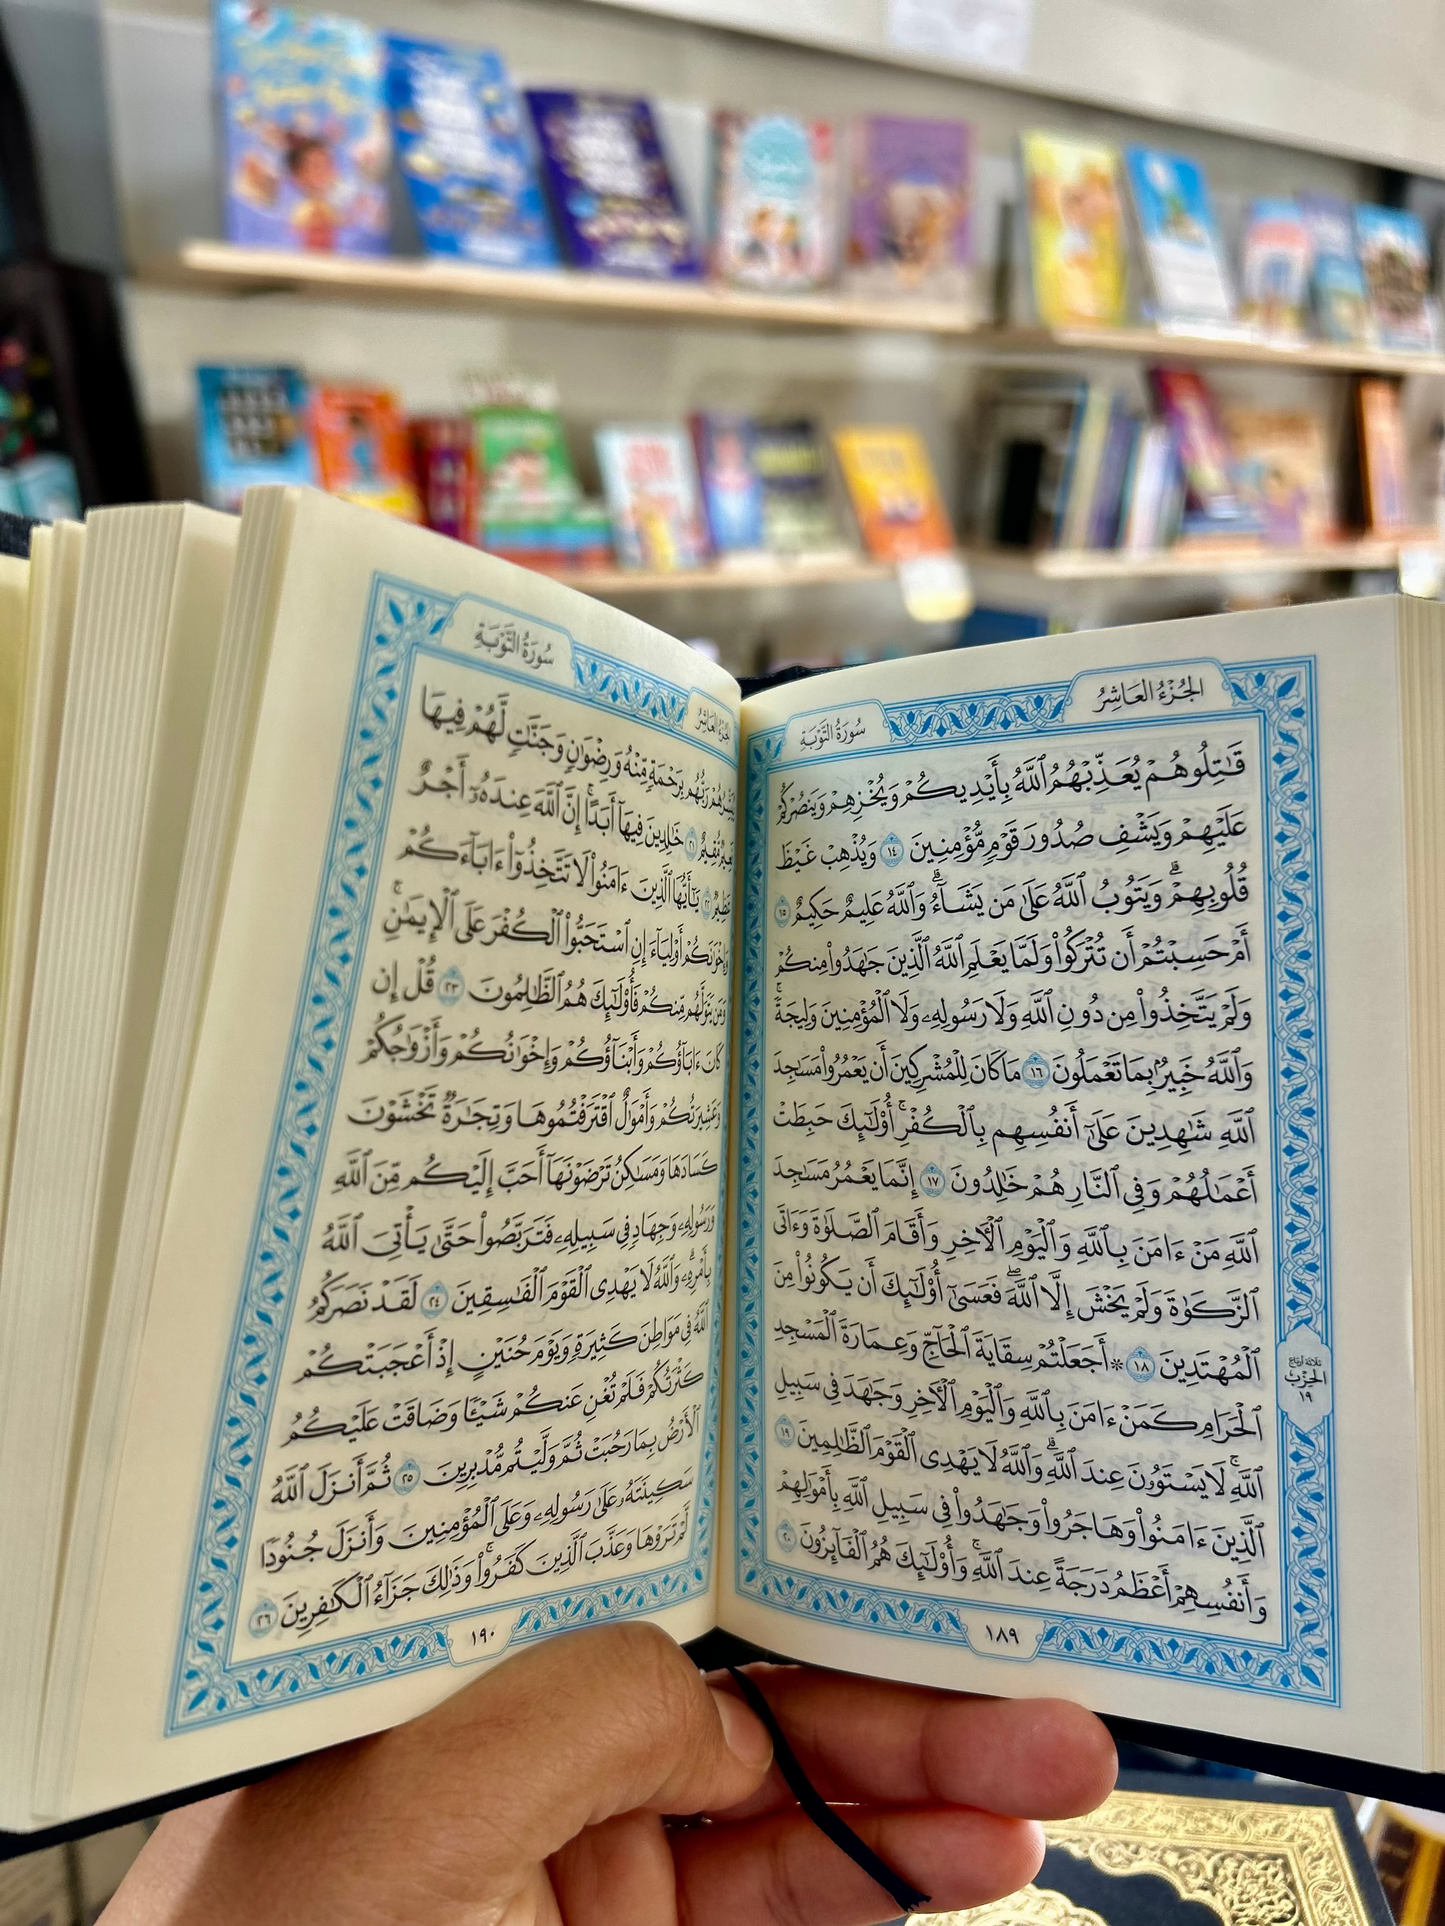 الجُزْءُ العَاشِرُ
سُورَةُ التَّوْبَةِ
قَٰتِلُوهُمْ يُعَذِّبْهُمُ ٱللَّهُ بِأَيْدِيكُمْ وَيُخْزِهِمْ وَيَنصُرْكُمْ
عَلَيْهِمْ وَيَشْفِ صُدُورَ قَوْمٍ مُّؤْمِنِينَ ١٤ وَيُذْهِبْ غَيْظَ
قُلُوبِهِمْ ۗ وَيَتُوبُ ٱللَّهُ عَلَىٰ مَن يَشَآءُ ۗ وَٱللَّهُ عَلِيمٌ حَكِيمٌ ١٥
أَمْ حَسِبْتُمْ أَن تُتْرَكُوا۟ وَلَمَّا يَعْلَمِ ٱللَّهُ ٱلَّذِينَ جَٰهَدُوا۟ مِنكُمْ
وَلَمْ يَتَّخِذُوا۟ مِن دُونِ ٱللَّهِ وَلَا رَسُولِهِۦ وَلَا ٱلْمُؤْمِنِينَ وَلِيجَةً ۚ
وَٱللَّهُ خَبِيرٌۢ بِمَا تَعْمَلُونَ ١٦ مَا كَانَ لِلْمُشْرِكِينَ أَن يَعْمُرُوا۟ مَسَٰجِدَ
ٱللَّهِ شَٰهِدِينَ عَلَىٰٓ أَنفُسِهِم بِٱلْكُفْرِ ۚ أُو۟لَٰٓئِكَ حَبِطَتْ
أَعْمَٰلُهُمْ وَفِى ٱلنَّارِ هُمْ خَٰلِدُونَ ١٧ إِنَّمَا يَعْمُرُ مَسَٰجِدَ
ٱللَّهِ مَنْ ءَامَنَ بِٱللَّهِ وَٱلْيَوْمِ ٱلْءَاخِرِ وَأَقَامَ ٱلصَّلَوٰةَ وَءَاتَى
ٱلزَّكَوٰةَ وَلَمْ يَخْشَ إِلَّا ٱللَّهَ ۖ فَعَسَىٰٓ أُو۟لَٰٓئِكَ أَن يَكُونُوا۟ مِنَ
ٱلْمُهْتَدِينَ ١٨ * أَجَعَلْتُمْ سِقَايَةَ ٱلْحَآجِّ وَعِمَارَةَ ٱلْمَسْجِدِ
ٱلْحَرَامِ كَمَنْ ءَامَنَ بِٱللَّهِ وَٱلْيَوْمِ ٱلْءَاخِرِ وَجَٰهَدَ فِى سَبِيلِ
ٱللَّهِ ۚ لَا يَسْتَوُۥنَ عِندَ ٱللَّهِ ۗ وَٱللَّهُ لَا يَهْدِى ٱلْقَوْمَ ٱلظَّٰلِمِينَ ١٩
ٱلَّذِينَ ءَامَنُوا۟ وَهَاجَرُوا۟ وَجَٰهَدُوا۟ فِى سَبِيلِ ٱللَّهِ بِأَمْوَٰلِهِمْ
وَأَنفُسِهِمْ أَعْظَمُ دَرَجَةً عِندَ ٱللَّهِ ۚ وَأُو۟لَٰٓئِكَ هُمُ ٱلْفَآئِزُونَ ٢٠
ثلاثة أرباع
الحزب
١٩
١٨٩
الجُزْءُ العَاشِرُ
سُورَةُ التَّوْبَةِ
يُبَشِّرُهُمْ رَبُّهُم بِرَحْمَةٍ مِّنْهُ وَرِضْوَٰنٍ وَجَنَّٰتٍ لَّهُمْ فِيهَا
نَعِيمٌ مُّقِيمٌ ٢١ خَٰلِدِينَ فِيهَآ أَبَدًا ۚ إِنَّ ٱللَّهَ عِندَهُۥٓ أَجْرٌ
عَظِيمٌ ٢٢ يَٰٓأَيُّهَا ٱلَّذِينَ ءَامَنُوا۟ لَا تَتَّخِذُوٓا۟ ءَابَآءَكُمْ
وَإِخْوَٰنَكُمْ أَوْلِيَآءَ إِنِ ٱسْتَحَبُّوا۟ ٱلْكُفْرَ عَلَى ٱلْإِيمَٰنِ ۚ
وَمَن يَتَوَلَّهُم مِّنكُمْ فَأُو۟لَٰٓئِكَ هُمُ ٱلظَّٰلِمُونَ ٢٣ قُلْ إِن
كَانَ ءَابَآؤُكُمْ وَأَبْنَآؤُكُمْ وَإِخْوَٰنُكُمْ وَأَزْوَٰجُكُمْ
وَعَشِيرَتُكُمْ وَأَمْوَٰلٌ ٱقْتَرَفْتُمُوهَا وَتِجَٰرَةٌ تَخْشَوْنَ
كَسَادَهَا وَمَسَٰكِنُ تَرْضَوْنَهَآ أَحَبَّ إِلَيْكُم مِّنَ ٱللَّهِ
وَرَسُولِهِۦ وَجِهَادٍ فِى سَبِيلِهِۦ فَتَرَبَّصُوا۟ حَتَّىٰ يَأْتِىَ ٱللَّهُ
بِأَمْرِهِۦ ۗ وَٱللَّهُ لَا يَهْدِى ٱلْقَوْمَ ٱلْفَٰسِقِينَ ٢٤ لَقَدْ نَصَرَكُمُ
ٱللَّهُ فِى مَوَاطِنَ كَثِيرَةٍ ۙ وَيَوْمَ حُنَيْنٍ ۙ إِذْ أَعْجَبَتْكُمْ
كَثْرَتُكُمْ فَلَمْ تُغْنِ عَنكُمْ شَيْـًٔا وَضَاقَتْ عَلَيْكُمُ
ٱلْأَرْضُ بِمَا رَحُبَتْ ثُمَّ وَلَّيْتُم مُّدْبِرِينَ ٢٥ ثُمَّ أَنزَلَ ٱللَّهُ
سَكِينَتَهُۥ عَلَىٰ رَسُولِهِۦ وَعَلَى ٱلْمُؤْمِنِينَ وَأَنزَلَ جُنُودًا
لَّمْ تَرَوْهَا وَعَذَّبَ ٱلَّذِينَ كَفَرُوا۟ ۚ وَذَٰلِكَ جَزَآءُ ٱلْكَٰفِرِينَ ٢٦
١٩٠